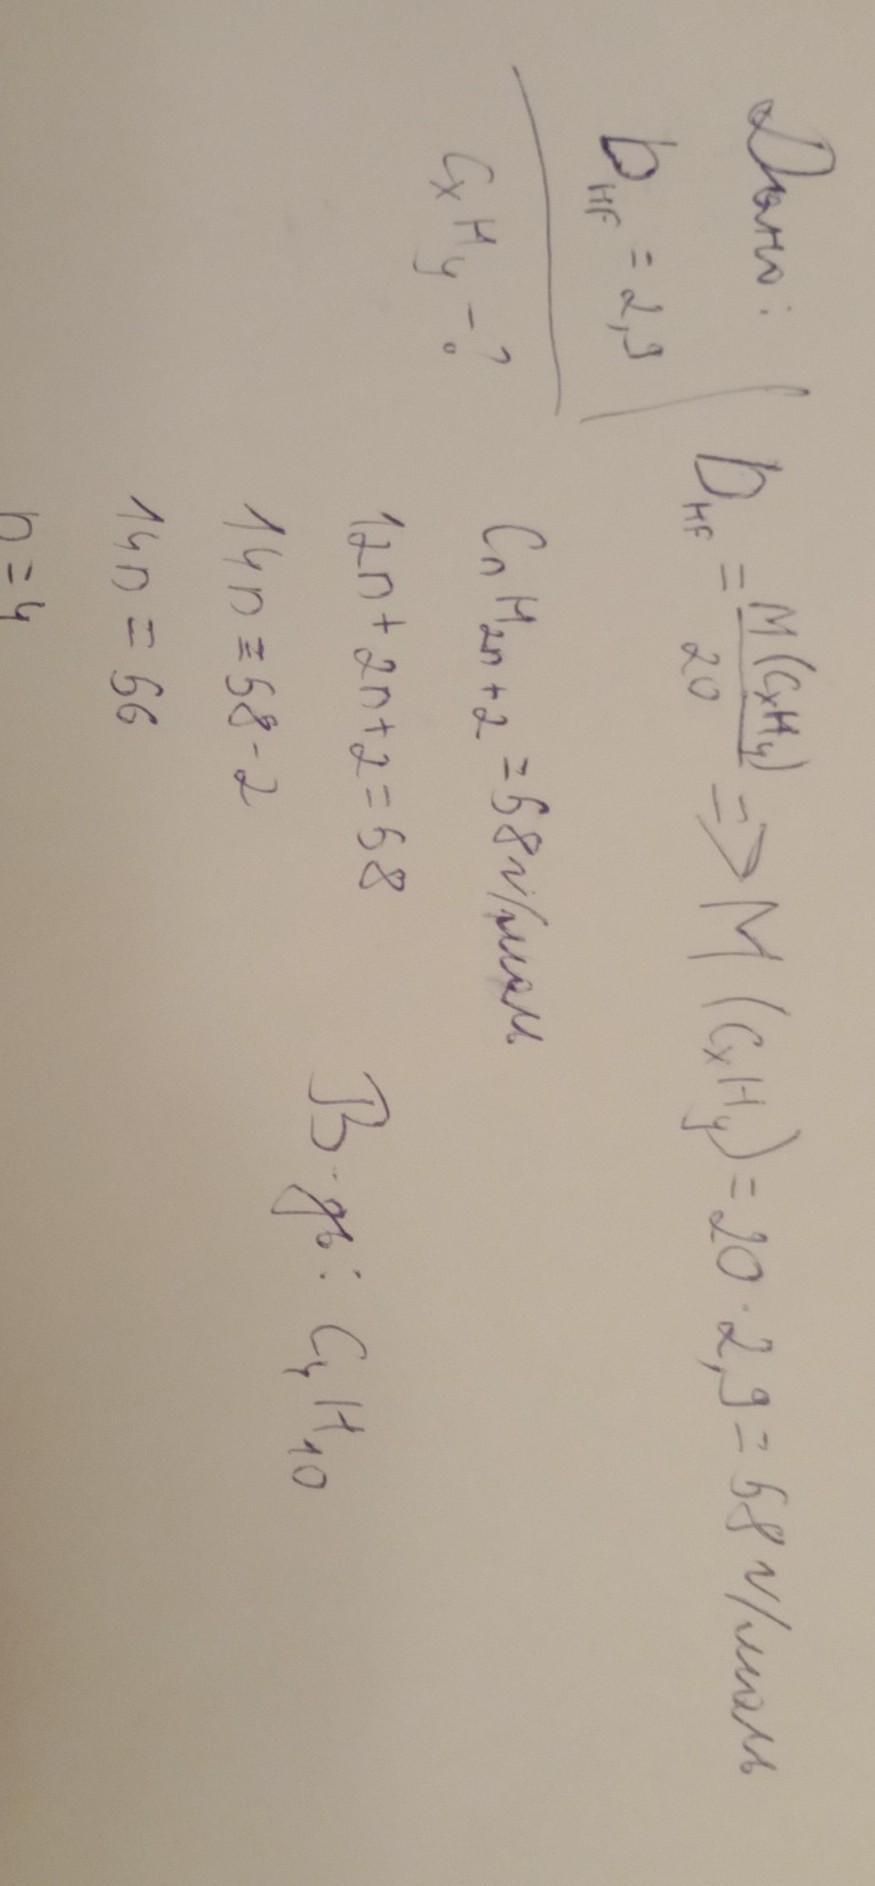 Дано:
D HF = 2,9
CxHy - ?
D HF = M(CxHy)/20 => M(CxHy) = 20 · 2,9 = 58 г/моль
CnH2n+2 = 58 г/моль
12n + 2n + 2 = 58
14n = 58 - 2
14n = 56
n = 4
В-дь: C4H10